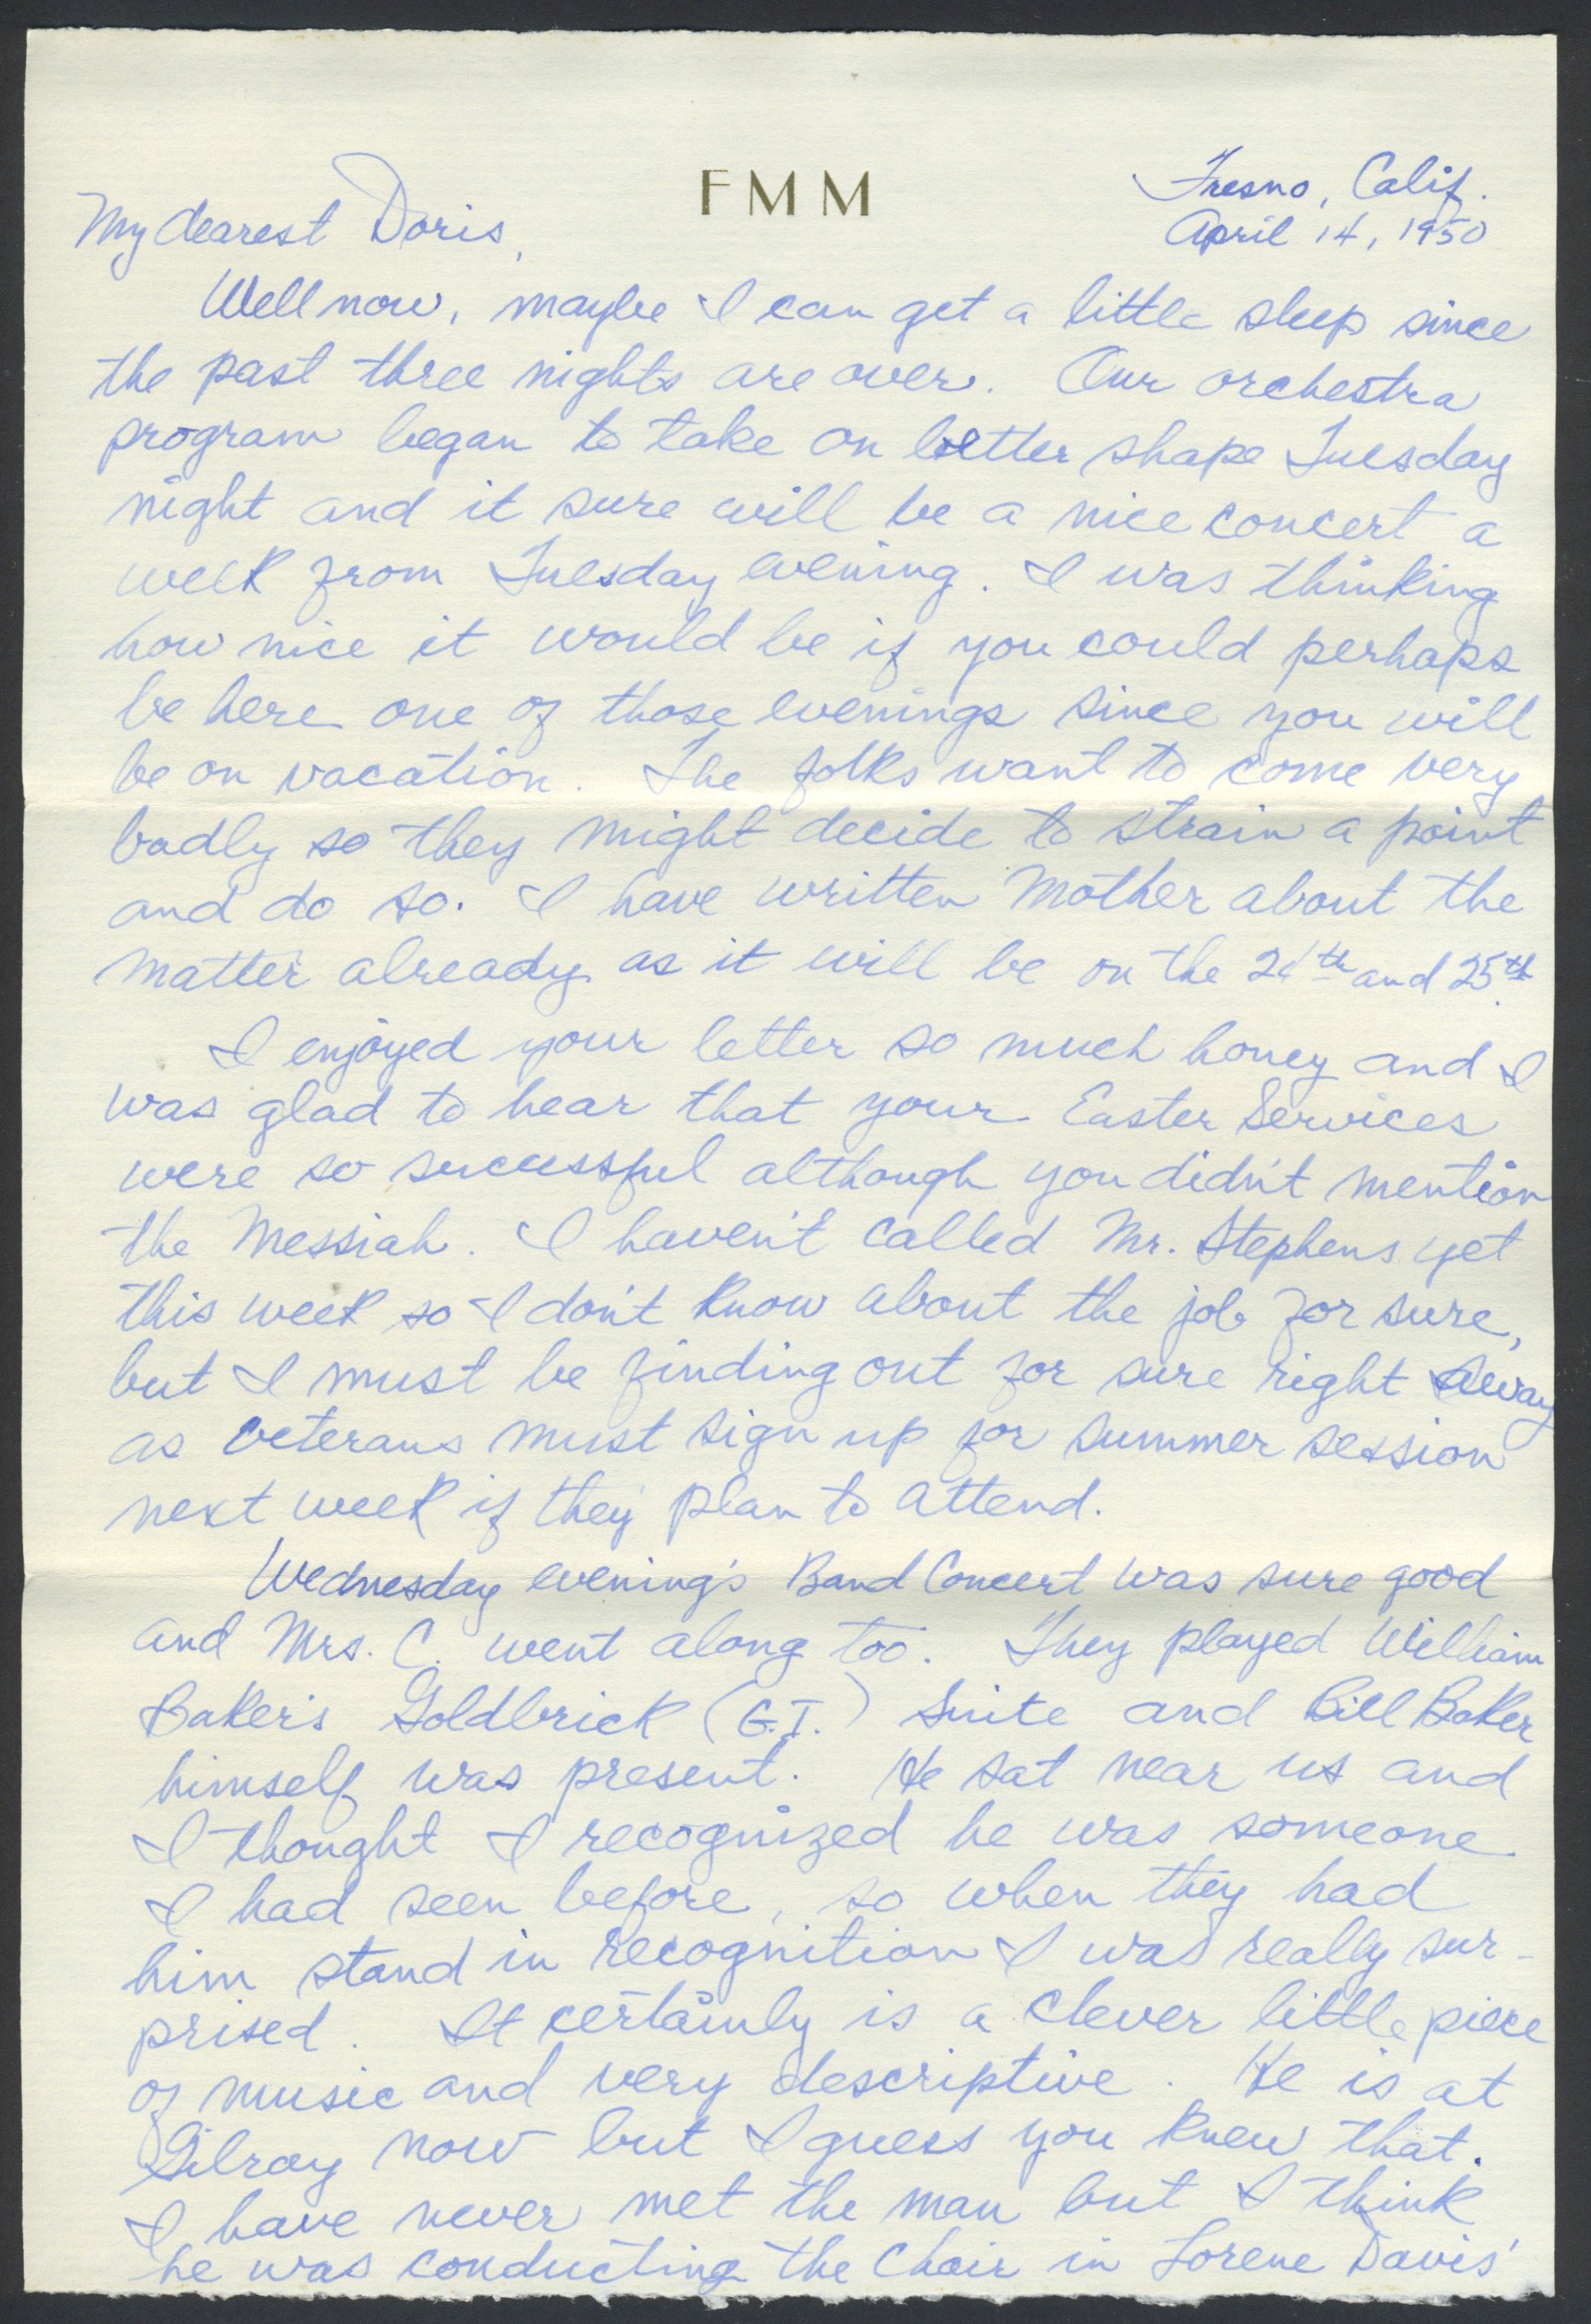 FMM
Fresno, Calif.
April 14, 1950
My dearest Doris,
Well now, maybe I can get a little sleep since
the past three nights are over. Our orchestra
program began to take on better shape Tuesday
night and it sure will be a nice concert a
week from Tuesday evening. I was thinking
how nice it would be if you could perhaps
be here one of those evenings since you will
be on vacation. The folks want to come very
badly so they might decide to strain a point
and do so. I have written Mother about the
matter already as it will be on the and 25th.
I enjoyed your letter so much honey and I
was glad to hear that your Easter Services
were so successful although you didn't mention
the Messiah. I haven't called Mr. Stephens yet
this week so I don't know about the job for sure,
but I must be finding out for sure right away
as veterans must sign up for summer session
next week if they plan to attend.
Wednesday evening's Band Concert was sure good
and Mrs. C. went along too. They played William
Baker's Goldbrick (G.I.) Suite and Bill Baker
himself was present. He sat near us and
I thought I recognized he was someone
I had seen before, so when they had
him stand in recognition I was really sur-
prised. It certainly is a clever little piece
of music and very descriptive. He is at
Gilroy now but I guess you knew that.
I have never met the man but I think
he was conducting the Choir in Lorene Davis'